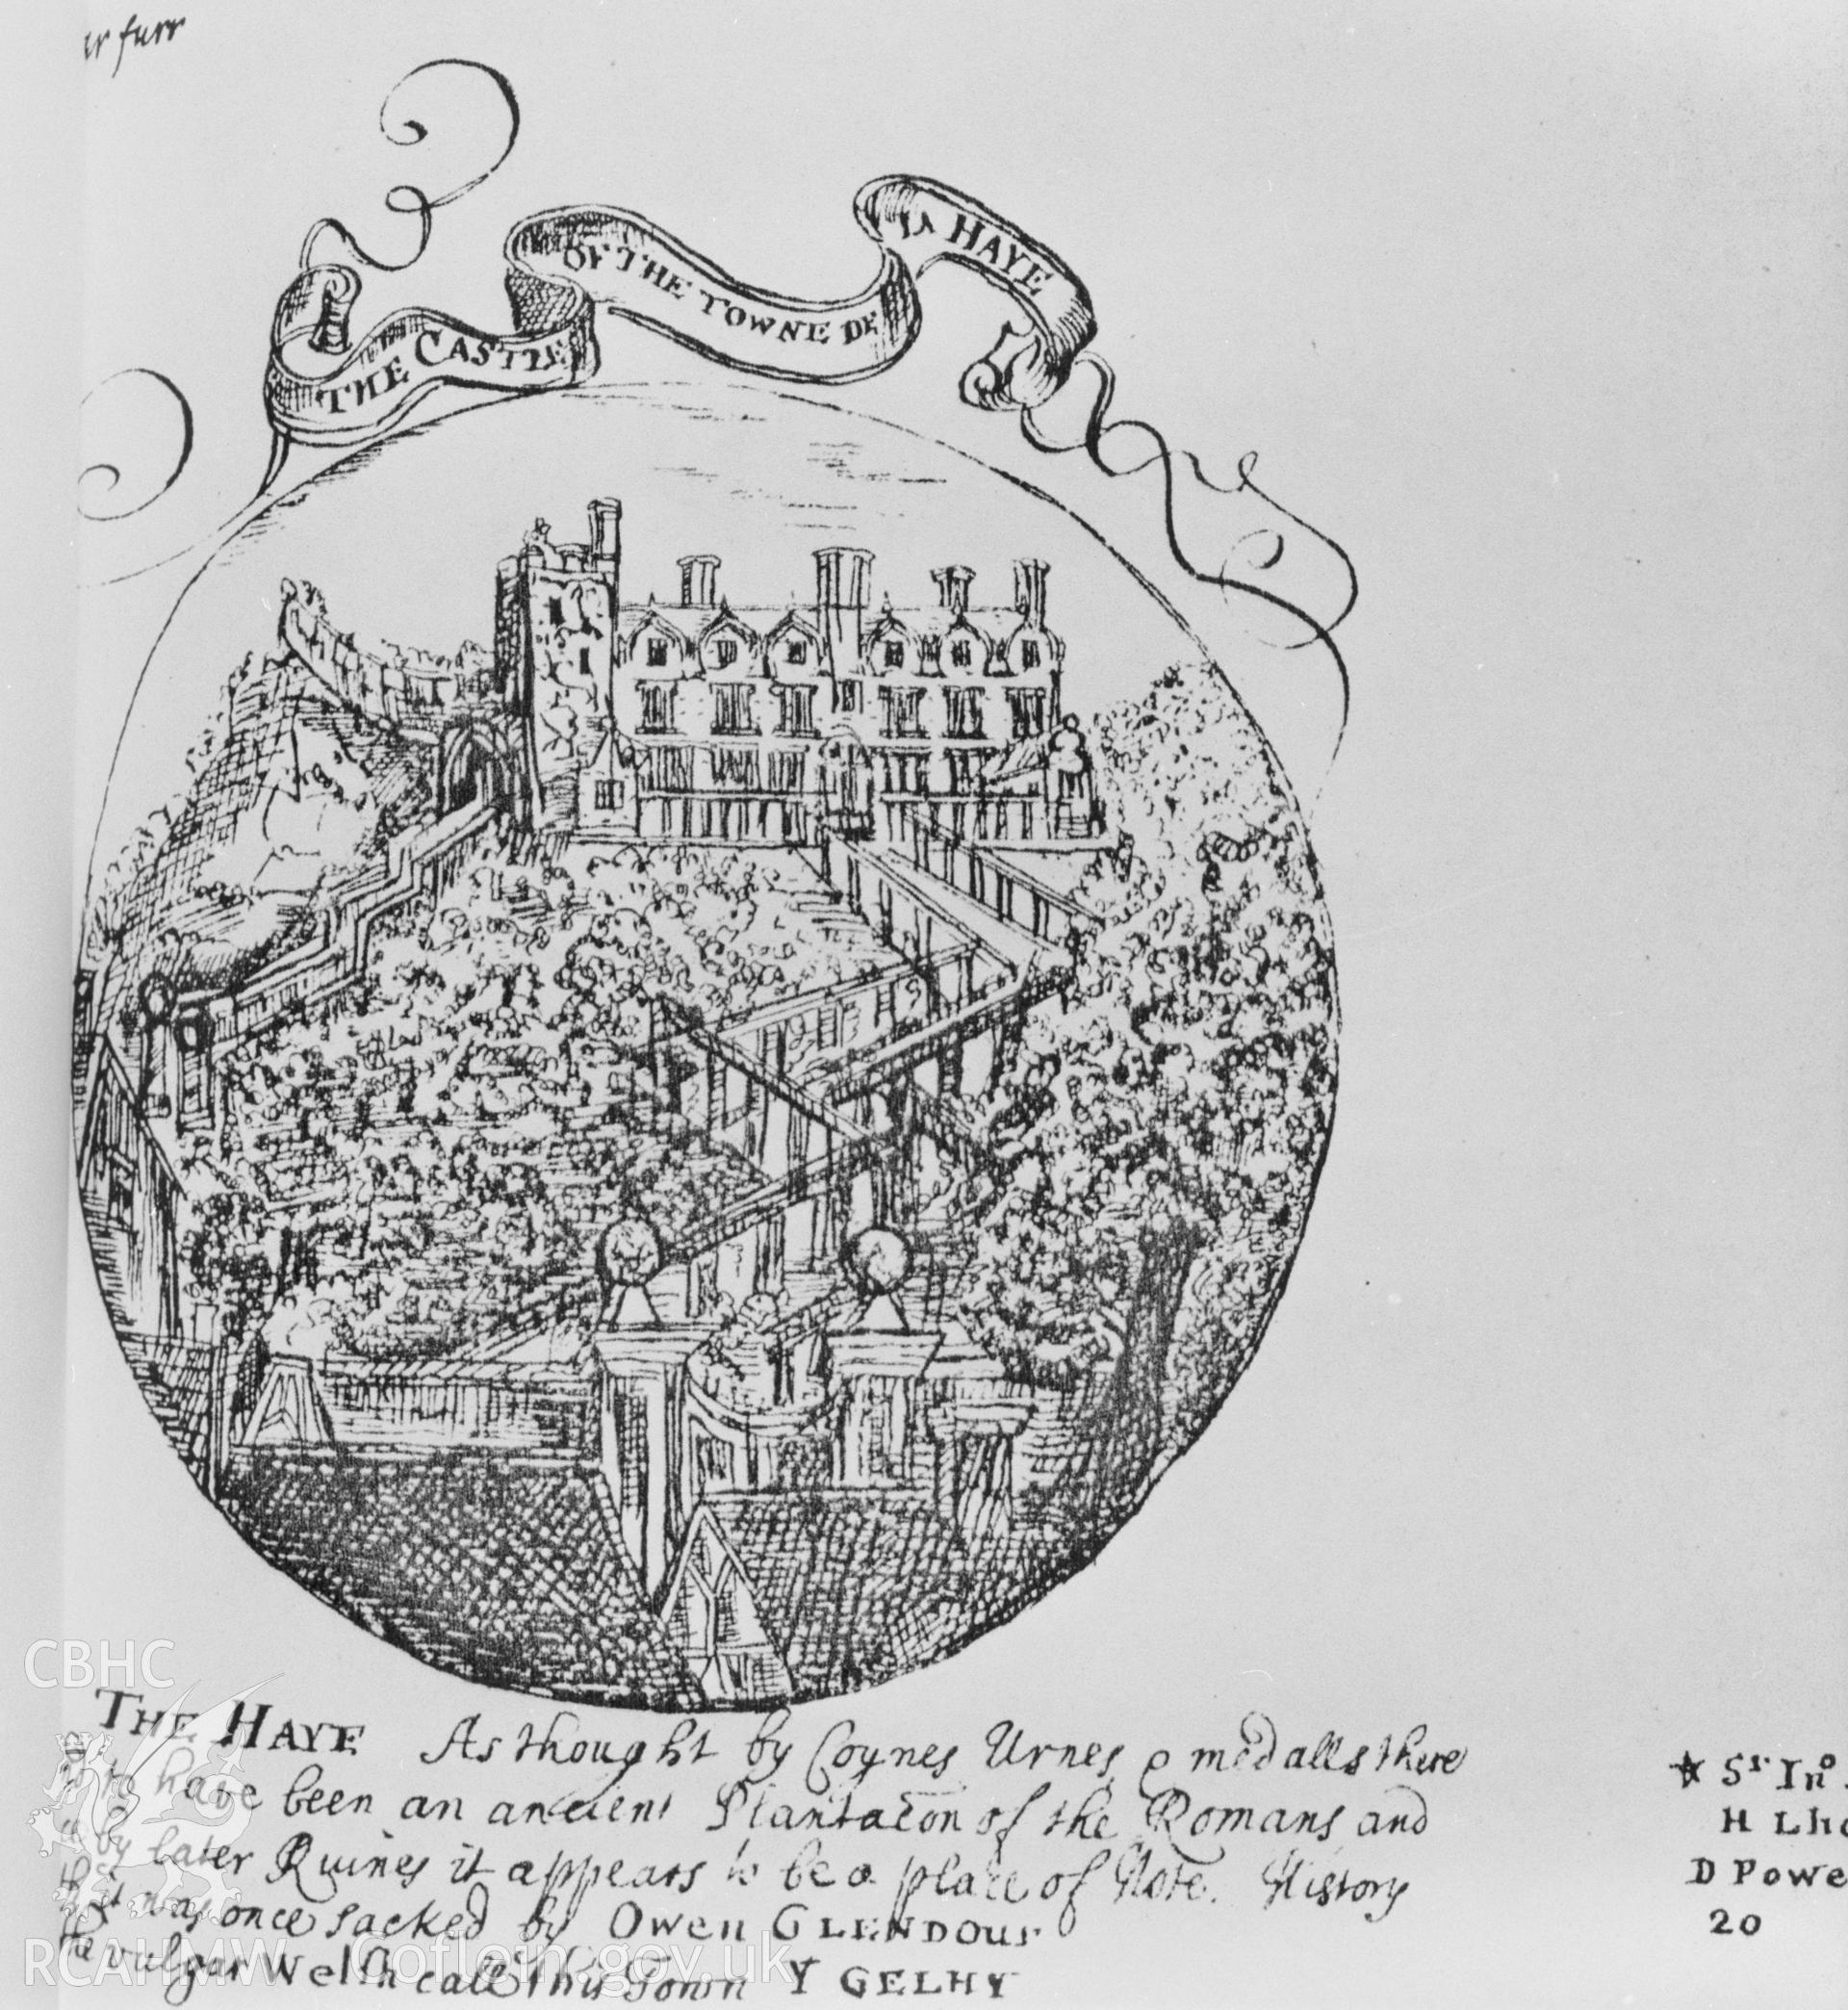 furr
THE CASTLE
OF THE TOWNE DE
LA HAYE
THE HAYE As thought by Coynes Urnes & medalls there
to have been an ancient Plantacon of the Romans and
by later Ruines it appears to be a place of Note. History
it was once sacked by Owen GLENDOUR
the vulgar Welsh call this Town Y GELHY
* Sr Ino
H Lh
D Powe
20
CBHC
RCAHMW Coflein.gov.uk